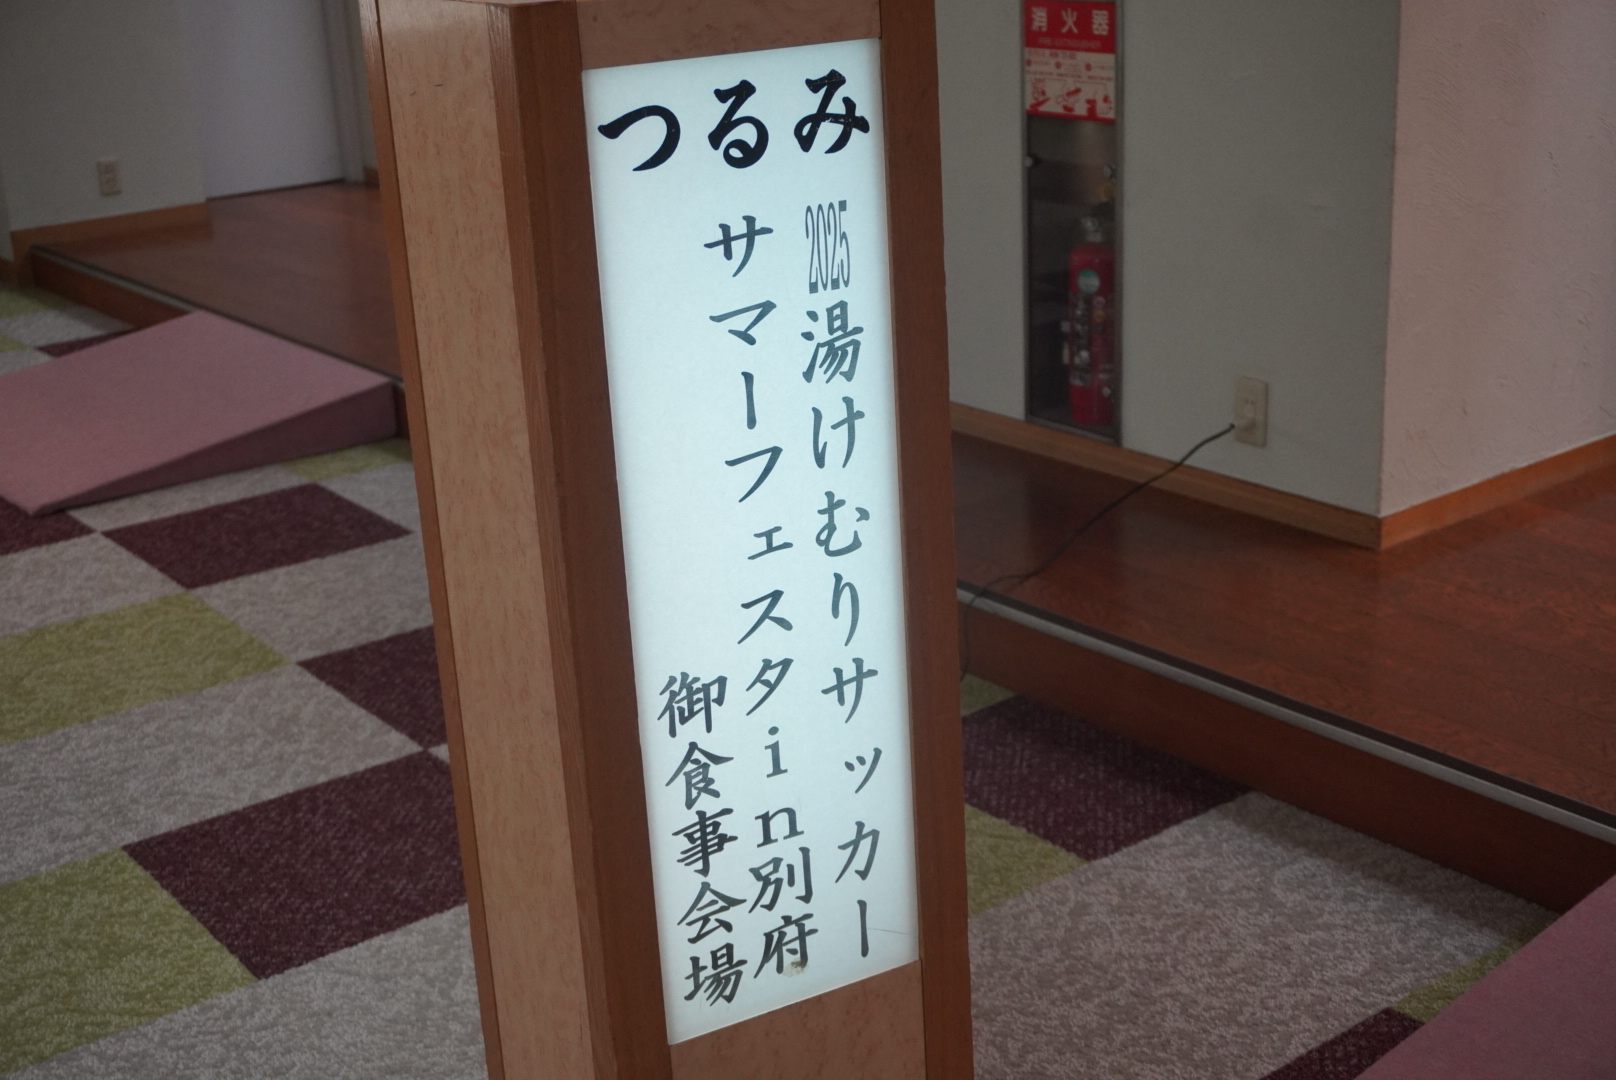 つるみ
2025湯けむりサッカー
サマーフェスタin別府
御食事会場
消火器
FIRE EXTINGUISHER